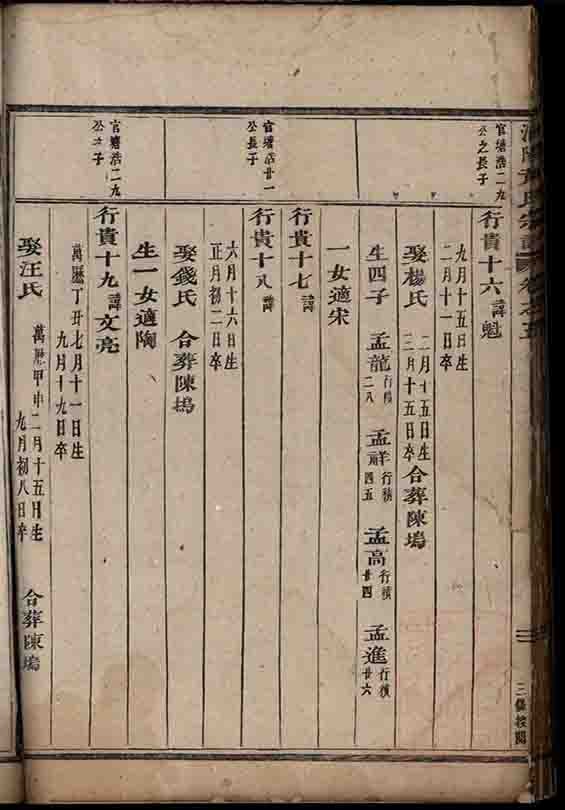 氏宗譜 卷之五
三儀按閣
官塘浩二九
公之長子
行貴十六 諱魁
九月十五日生
二月十一日卒
娶楊氏 二月十五日生 三月十五日卒 合葬陳塢
生四子 孟龍 行積二八 孟祥 行積四五 孟高 行積廿四 孟進 行積廿六
一女適宋
行貴十七 諱
官塘浩廿一
公長子
行貴十八 諱
六月十六日生
正月初二日卒
娶錢氏 合葬陳塢
生一女適陶
官塘浩二九
公子
行貴十九 諱文亮
萬曆丁丑七月十一日生
九月十九日卒
娶汪氏 萬曆甲申二月十五日生 九月初八日卒 合葬陳塢